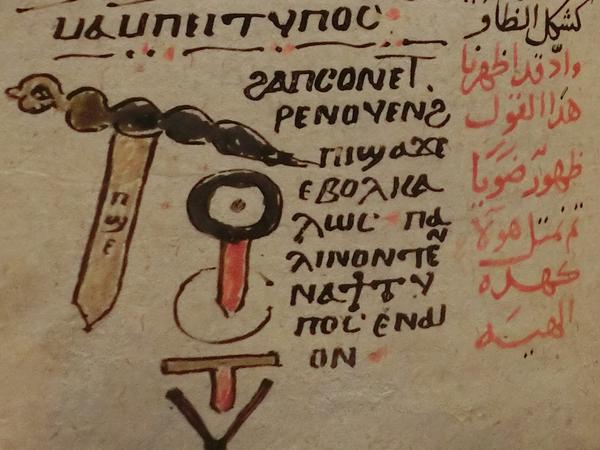 ⲙⲁⲙⲡⲉⲓⲧⲩⲡⲟⲥ
ϩⲁⲡⲥⲟⲛⲉⲧ.
ⲣⲉⲛⲟⲩⲉⲛϩ
ⲡⲓϣⲁϫⲉ
ⲉⲃⲟⲗⲕⲁ
ⲗⲱⲥ ⲡⲁ
ⲗⲓⲛⲟⲛⲧⲉ̄
ⲛⲁϯⲧⲩ
ⲡⲟⲥ ⲉⲛⲁⲓ
ⲟⲛ
كشكل الطاو
واذ قد اظهرنا
هذا القول
ظهورا ضويا
ثم نمثل هولا
كهذه